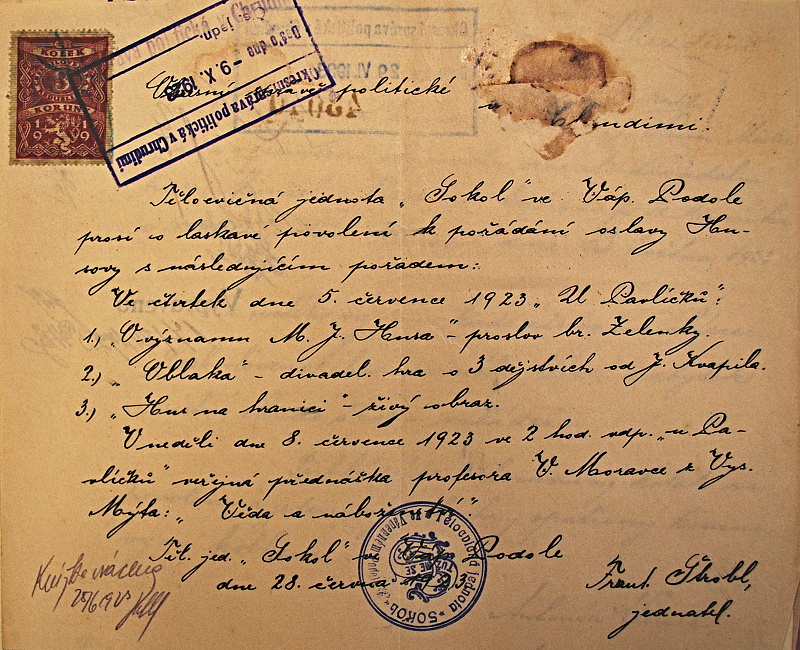 KOLEK
3
KORUNY
1919
Okresní správa politická v Chrudimi
Došlo dne -9.X.1923
Okresní správa politická
20.VI.1923
politické
v Chrudimi.
Tělocvičná jednota „Sokol" ve Váp. Podole
prosí o laskavé povolení k pořádání oslavy Hu-
sovy s následujícím pořadem:
Ve čtvrtek dne 5. července 1923 „U Pavlíčků":
1.) „O významu M. J. Husa" – proslov br. Zelenky.
2.) „Oblaka" – divadel. hra o 3 dějstvích od J. Kvapila.
3.) „Hus na hranici" – živý obraz.
V neděli dne 8. července 1923 ve 2 hod. odp. „u Pa-
vlíčků" veřejná přednáška profesora V. Moravce z Vys.
Mýta: „Věda a náboženství".
Těl. jed. „Sokol" ve Váp. Podole
dne 28. června 1923.
Frant. Štrobl,
jednatel.
Tělocvičná jednota „SOKOL"
TUŽME SE